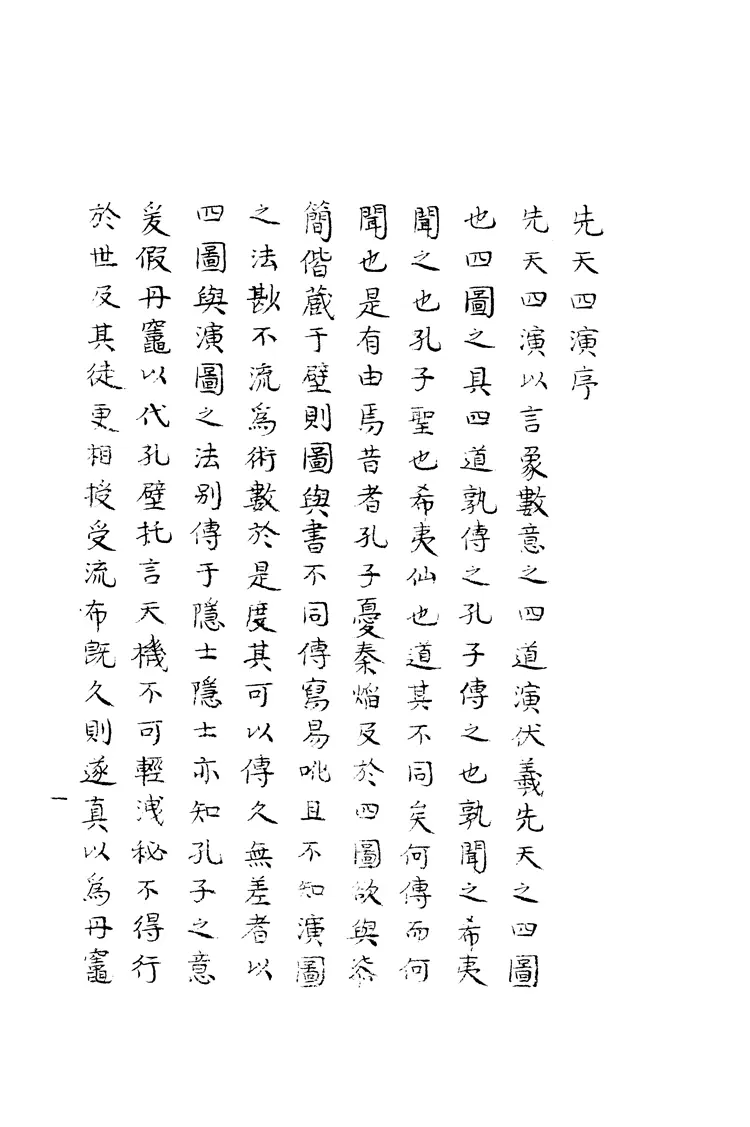 先天四演序
先天四演以言象數意之四道演伏羲先天之四圖
也四圖之具四道孰傳之孔子傳之也孰聞之希夷
聞之也孔子聖也希夷仙也道其不同矣何傳而何
聞也是有由焉昔者孔子憂秦焰及於四圖欲與漆
簡偕蔵于壁則圖與書不同傳寫易訛且不知演圖
之法尠不流爲術數於是度其可以傳久無差者以
四圖與演圖之法别傳于隱士隱士亦知孔子之意
爰假丹竈以代孔壁托言天機不可輕洩秘不得行
於世及其徒更相授受流布旣久則遂真以爲丹竈
一